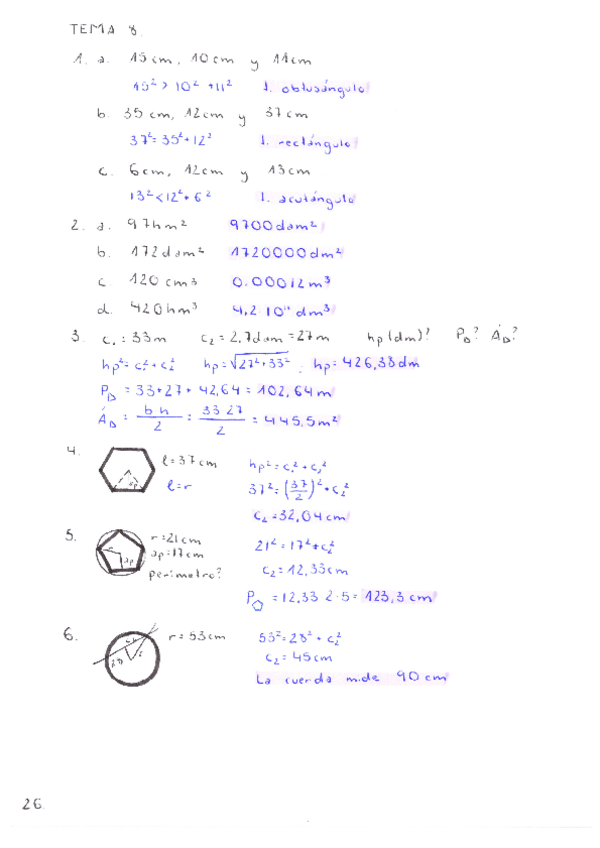 TEMA 8.
1. a. 15cm, 10cm y 11cm
15² > 10² + 11² T. obtusángulo
b. 35cm, 12cm y 37cm
37² = 35² + 12² T. rectángulo
c. 6cm, 12cm y 13cm
13² < 12² + 6² T. acutángulo
2. a. 97hm² 9700dam²
b. 172dam² 1720000dm²
c. 120cm³ 0.00012m³
d. 420hm³
3. c₁ = 33m c₂ = 2,7dam = 27m hp(dm)? P? Á?
hp² = c₁² + c₂² hp = √27² + 33² ; hp = 426,38dm
P = 33 + 27 + 42,64 = 102,64m
Á = b·h / 2 = 33·27 / 2 = 445,5m²
4. l = 37cm hp² = c₁² + c₂²
l = r 37² = (37/2)² + c₂²
ap
c₂ = 32,04cm
5. r = 21cm 21² = 17² + c₂²
ap = 17cm c₂ = 12,33cm
ap
perímetro? P = 12,33·2·5 = 123,3cm
6. r = 53cm 53² = 28² + c₂²
28
c₂ = 45cm
La cuerda mide 90cm
26.